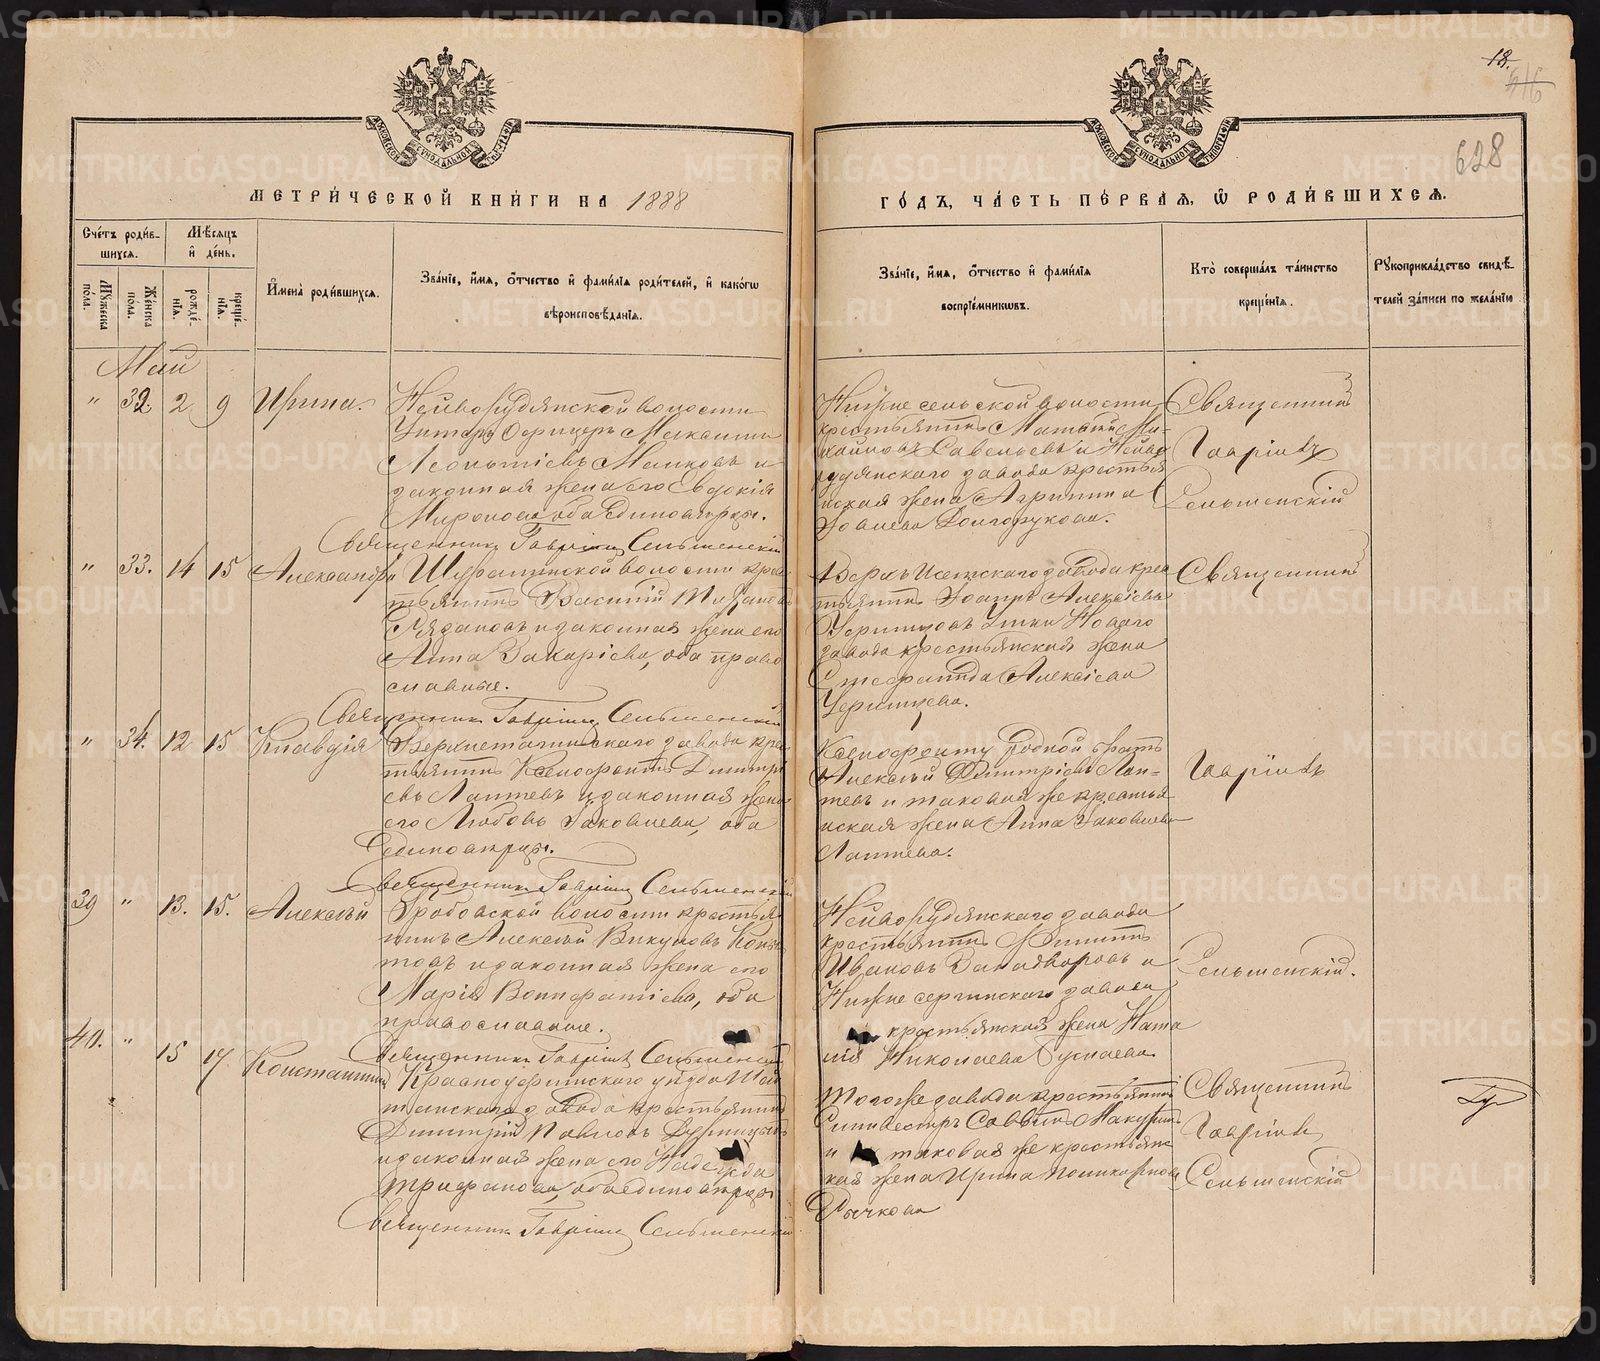 18.
628
МЕТРИ́ЧЕСКОЙ КНИ́ГИ НА 1888
ГО́ДЪ, ЧА́СТЬ ПЕ́РВАѦ, Ѡ҆ РОДИ́ВШИХСѦ.
Сче́тъ роди́в-
шихся.
Мѣ́сяцъ
и҆ де́нь.
Мꙋ́жеска по́ла.
Же́нска по́ла.
рожде́нїѧ.
креще́нїѧ.
И҆мена̀ роди́вшихся.
Зва́нїе, и҆́мѧ, ѻ҆́тчество и҆ фами́лїѧ роди́телей, и҆ како́гѡ
вѣроисповѣ́данїѧ.
Зва́нїе, и҆́мѧ, ѻ҆́тчество и҆ фами́лїѧ
воспрїе́мникѡвъ.
Кто̀ соверша́лъ та́инство
креще́нїѧ.
Рꙋкоприкла́дство свидѣ́-
телей за́писи по жела́нїю
Май
" 32. 2 9 Ирина.
Нейворудянской волости
Унтеръ Офицеръ Максимъ
Леонтіевъ Малковъ и
законная жена его Евдокія
Миронова, оба Единоверцы.
Священникъ Гавріилъ Сельменскій
Нижнесельской волости
крестьянинъ Матвей Ми-
хайловъ Савельевъ и Нейво
рудянскаго завода крестья
нская жена Агрипина
Іовлева Долгорукова.
Священникъ
Гавріилъ
Сельменскій
" 33. 14 15 Александра
волости крес
тьянинъ Василій
и законная жена его
Анна Захаріева, оба право
славные.
Священникъ Гавріилъ Сельменскій
Верхъ Исетскаго завода крес
тьянинъ Іоаннъ Алексіевъ
Новаго
завода крестьянская жена
Алексіева
Священникъ
" 34. 12 15 Клавдія
завода крес
тьянинъ Ксенофонтъ Димитрі
евъ Лаптевъ и законная жена
его Любовь Іаковлева, оба
Единоверцы.
Священникъ Гавріилъ Сельменскій
Ксенофонту родной братъ
Алексей Димитріевъ Лап-
тевъ и таковая же крестья
нская жена Анна Іаковлева
Лаптева.
Гавріилъ
39 " 13. 15. Алексей
Гробовской волости крестья
нинъ Алексей Викуловъ
и законная жена его
Марія Вонифатіева, оба
православные.
Священникъ Гавріилъ Сельменскій
Нейворудянскаго завода
крестьянинъ Филиппъ
Ивановъ Западворовъ и
Нижнесергинскаго завода
крестьянская жена Ната
лія Николаева Гуляева.
Сельменскій.
40. " 15 17 Константинъ
Красноуфимскаго уезда Шай
танскаго завода крестьянинъ
Димитрій Павловъ
и законная жена его Надежда
Трифанова, оба единоверцы
Священникъ Гавріилъ Сельменскій
Того же завода крестьянинъ
Силивестръ Саввинъ
и таковая же крестьянс
кая жена Ирина Поликарпова
Рычкова
Священникъ
Гавріилъ
Сельменскій
METRIKI.GASO-URAL.RU